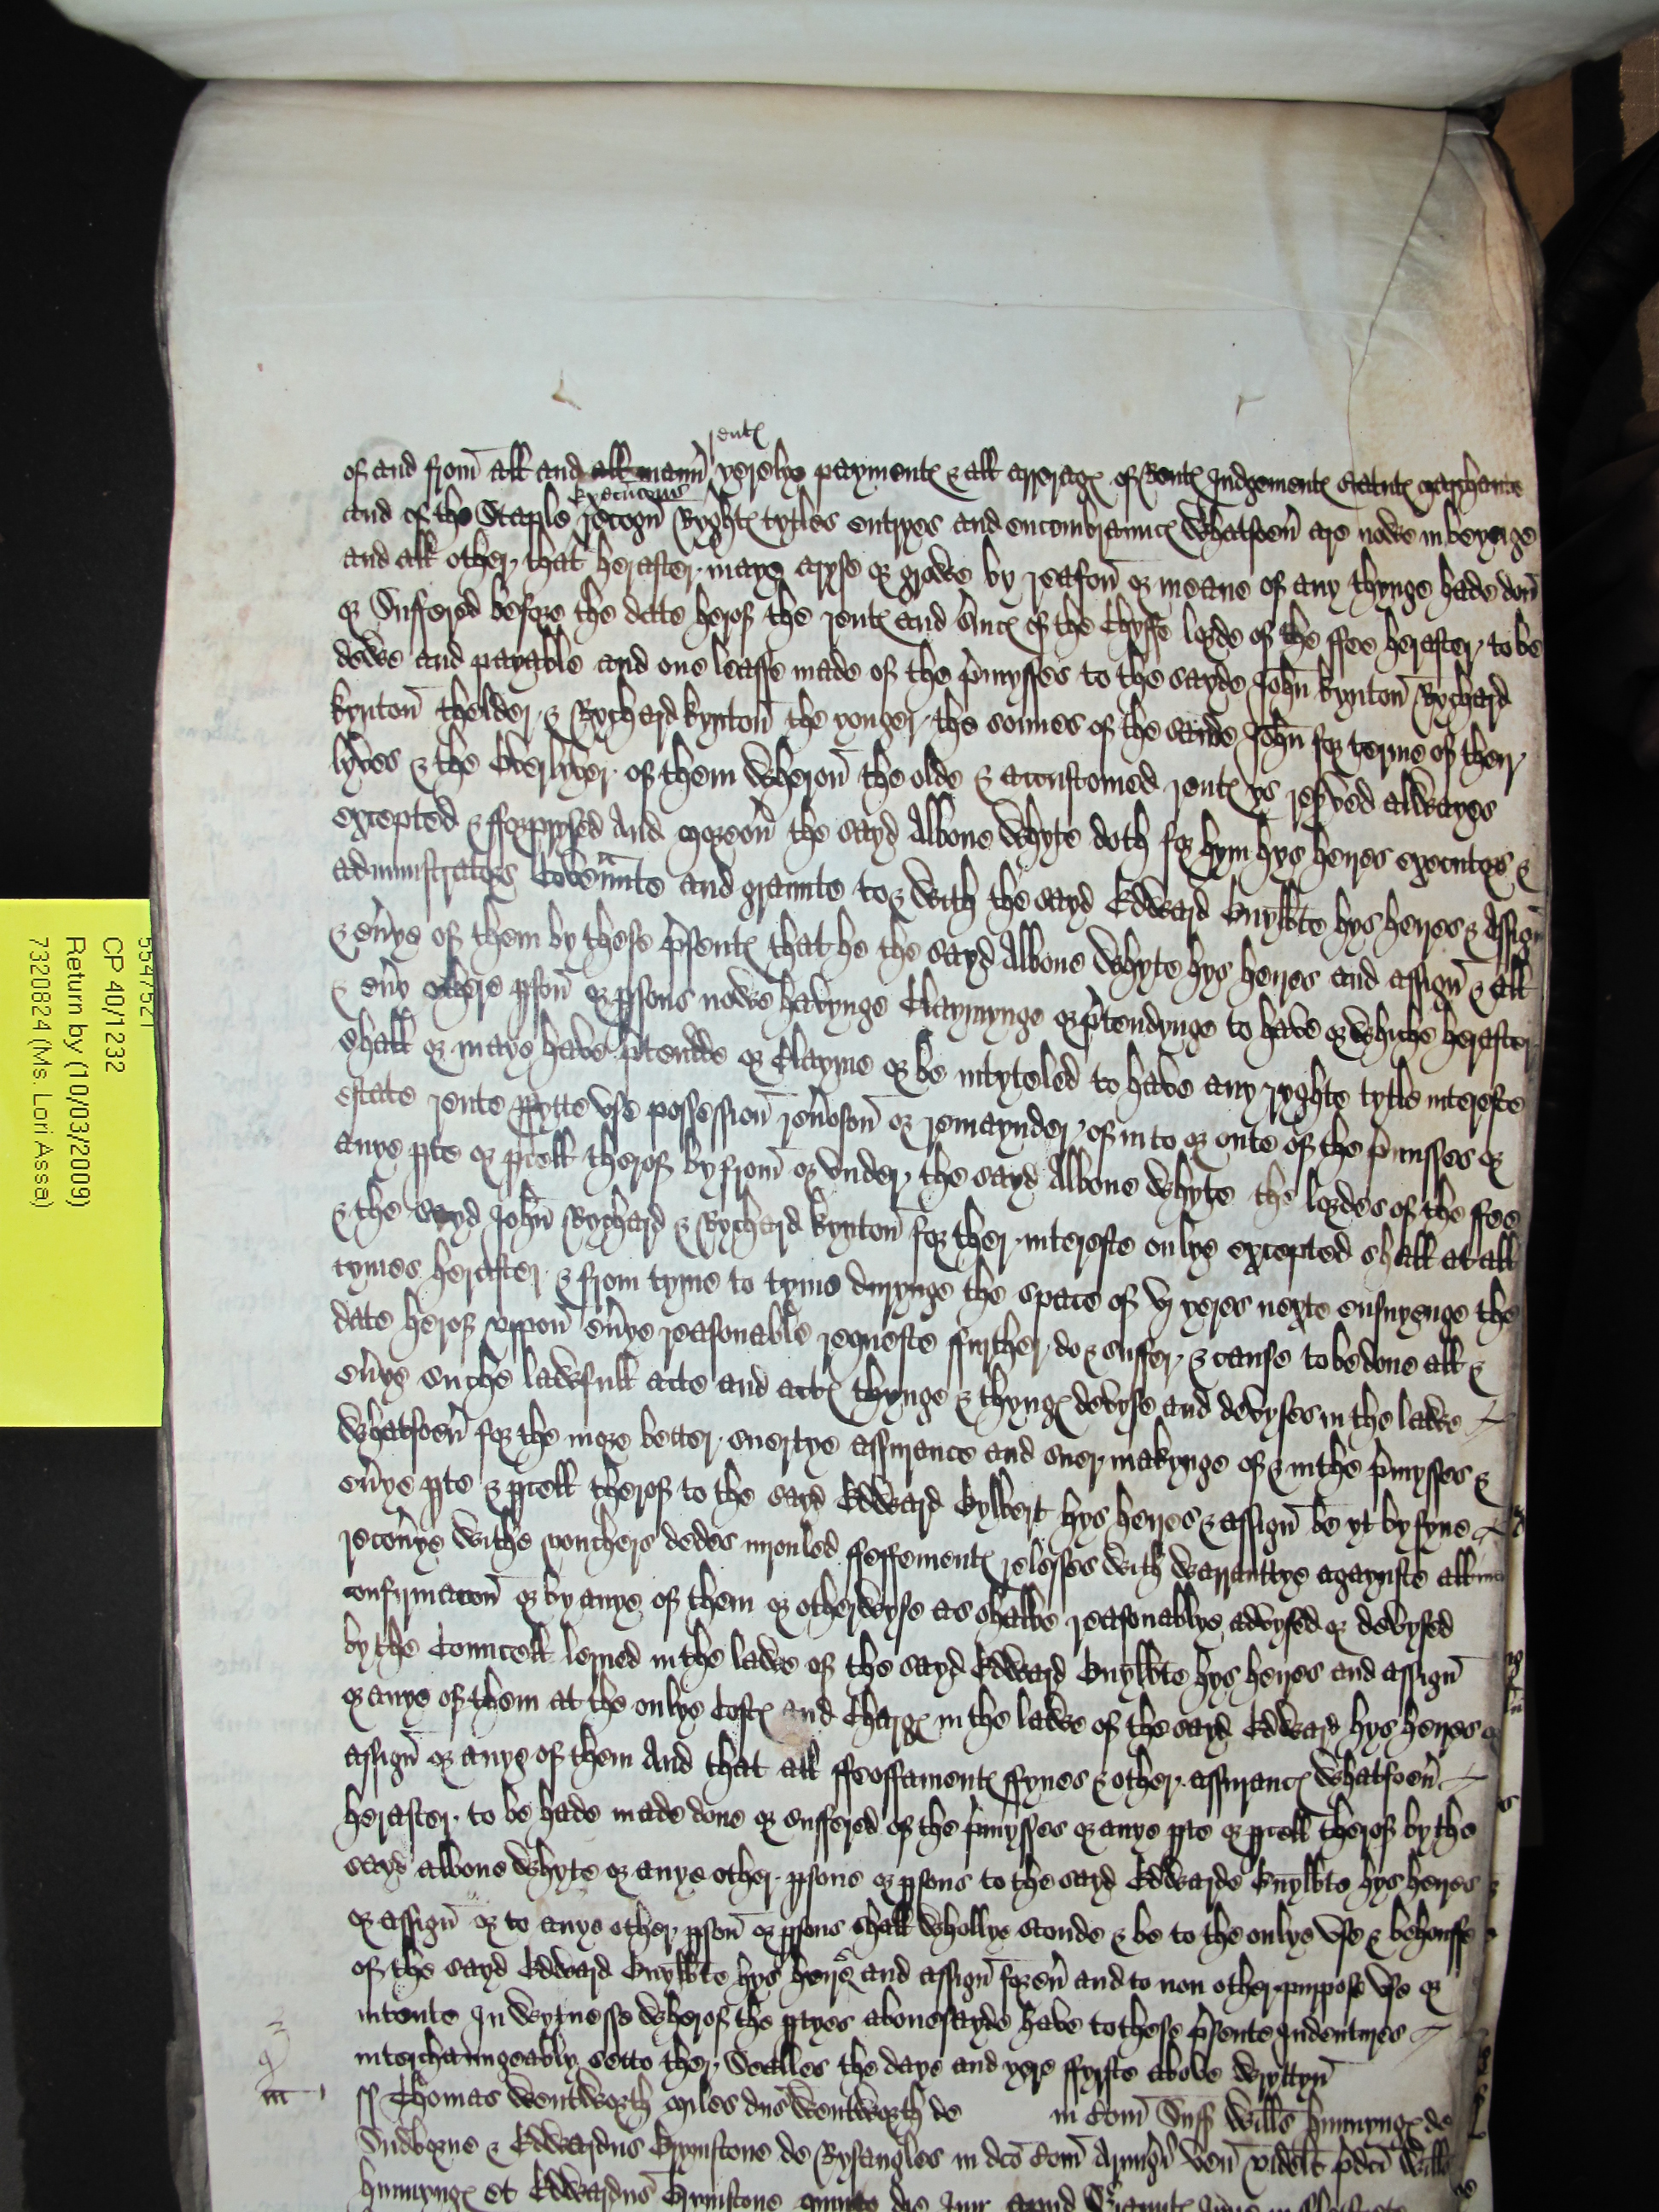 rentℯ
of and from all and all mann̄ yerelye paymentℯ & all arreragℯ of Rentℯ Judgementℯ statutℯ marchaunte
executions
and of the Staple recogn̄ Ryghtℯ tytles entryes and encombrauncℯ Whatsoeu̾ are nowe in beynge
and all other that herafter maye aryse or growe by reason̄ or meane of any thynge hade don̄
or Suffered before the date herof the rentℯ and s̾uicℯ of the Chyffe lorde of the ffee herafter to be
dewe and payable and one leasse made of the p̾mysses to the sayde John̄ kynton̄ Rychard
kynton̄ thelder & Rychard kynton̄ the yonger the sonnes of the saide John̄ for terme of ther
lyves & the Overlyver of them Wheron̄ the olde & accustomed rentℯ ys res̾ved allwayes
excepted & fforprysed And moreou̾ the sayd Albone Whyte doth for hym hys heyres executors &
administrators Coven̾nte and graunte to & with the sayd Edward Guylb̾te hys heyres & Assign̄
& eu̾ye of them by these p̾sentℯ that he the sayd Albone Whyte hys heyres and assign̄ & all
& eu̾y othere pson̄ or psons nowe havynge Claymynge or p̾tendynge to have or whiche herafter
shall or maye have p̾tendde or Clayme or be intyteled to have any ryghte tytle intereste
estate rente vse possession̄ reu̾cion̄ or remaynder of in to or oute of the p̾misses or
anye pte or pcell therof by from̄ or vnder the sayd Albone Whyte the lordes of the ffee
& the sayd John̄ Rychard & Rychard kynton̄ for ther intereste onlye excepted shall at all
tymes herafter & from tyme to tyme durynge the space of vj yeres nexte ensuyenge the
date herof vppon̄ eu̾ye reasonable requeste ffurther do & suffer & cause to be done all &
eu̾ye suche lawfull acte and actℯ thynge & thyngℯ devyse and devyses in the lawe
Whatsoeu̾ for the more better suertye assurance and suer makynge of & in the p̾mysses &
eu̾ye pte & pcell therof to the sayd Edward Gylbert hys heyres & assign̄ be yt by fyne
recou̾ye withe vouchers dedes inroulled ffeffementℯ relesses with warranttye agaynste all
confirmacon̄ or by anye of them or otherwyse as shalbe reasonablye advysed or devysed
by the Councell lerned in the lawe of the sayd Edward Guylb̾te hys heyres and assign̄
or anye of them at the onlye Costℯ and Chargℯ in the lawe of the sayd Edward hys heyres or
assign̄ or anye of them And that all ffeoffamentℯ ffynes & other assurancℯ Whatsoeu̾
herafter to be hade made done or suffered of the p̾mysses or anye pte or pcell therof by the
sayd albone Whyte or anye other psone or psons to the sayd Edwarde Guylb̾te hys heyres
or assign̄ or to anye other pson̄ or psons shall Whollye stonde & be to the onlye vse & behouffe
of the sayd Edward Guylb̾te hys heyres and assign̄ foreu̾ and to non other purpose vse or
intente In wytnesse wherof the ptyes abouesayde have to these p̾sente Indentures
interchaungeably sette ther Sealles the daye and yere ffyrste above wryttyn̄
m̄
ss Thomas Wentworth miles dn̄s Wentworth de in Com̄ Suff Will̄s hunnyngℯ de
Sudborne & Edwardus Grymstone de Rysangles in dc̄o Com̄ Armig̾i ven̄ videl̄t p̾dc̄i Will̄s
hunnyngℯ et Edwardus Grimstone
5547521
CP 40/1232
Return by (10/03/2009)
7320824 (Ms. Lori Assa)